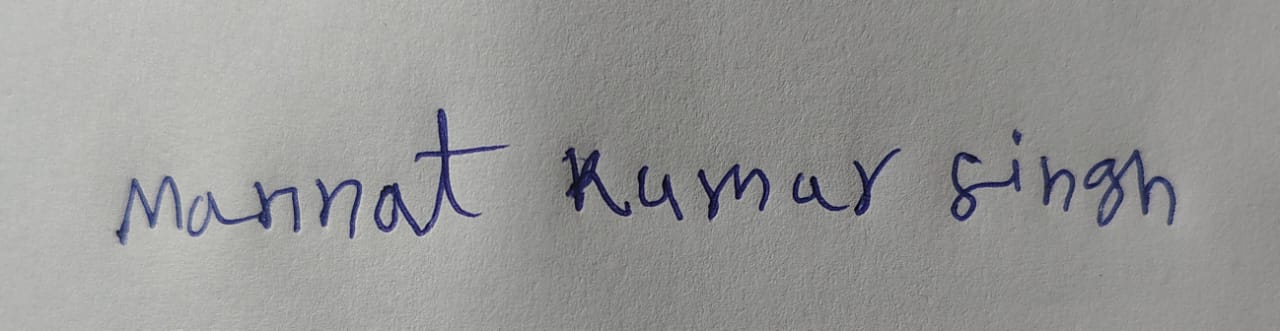 Mannat Kumar Singh